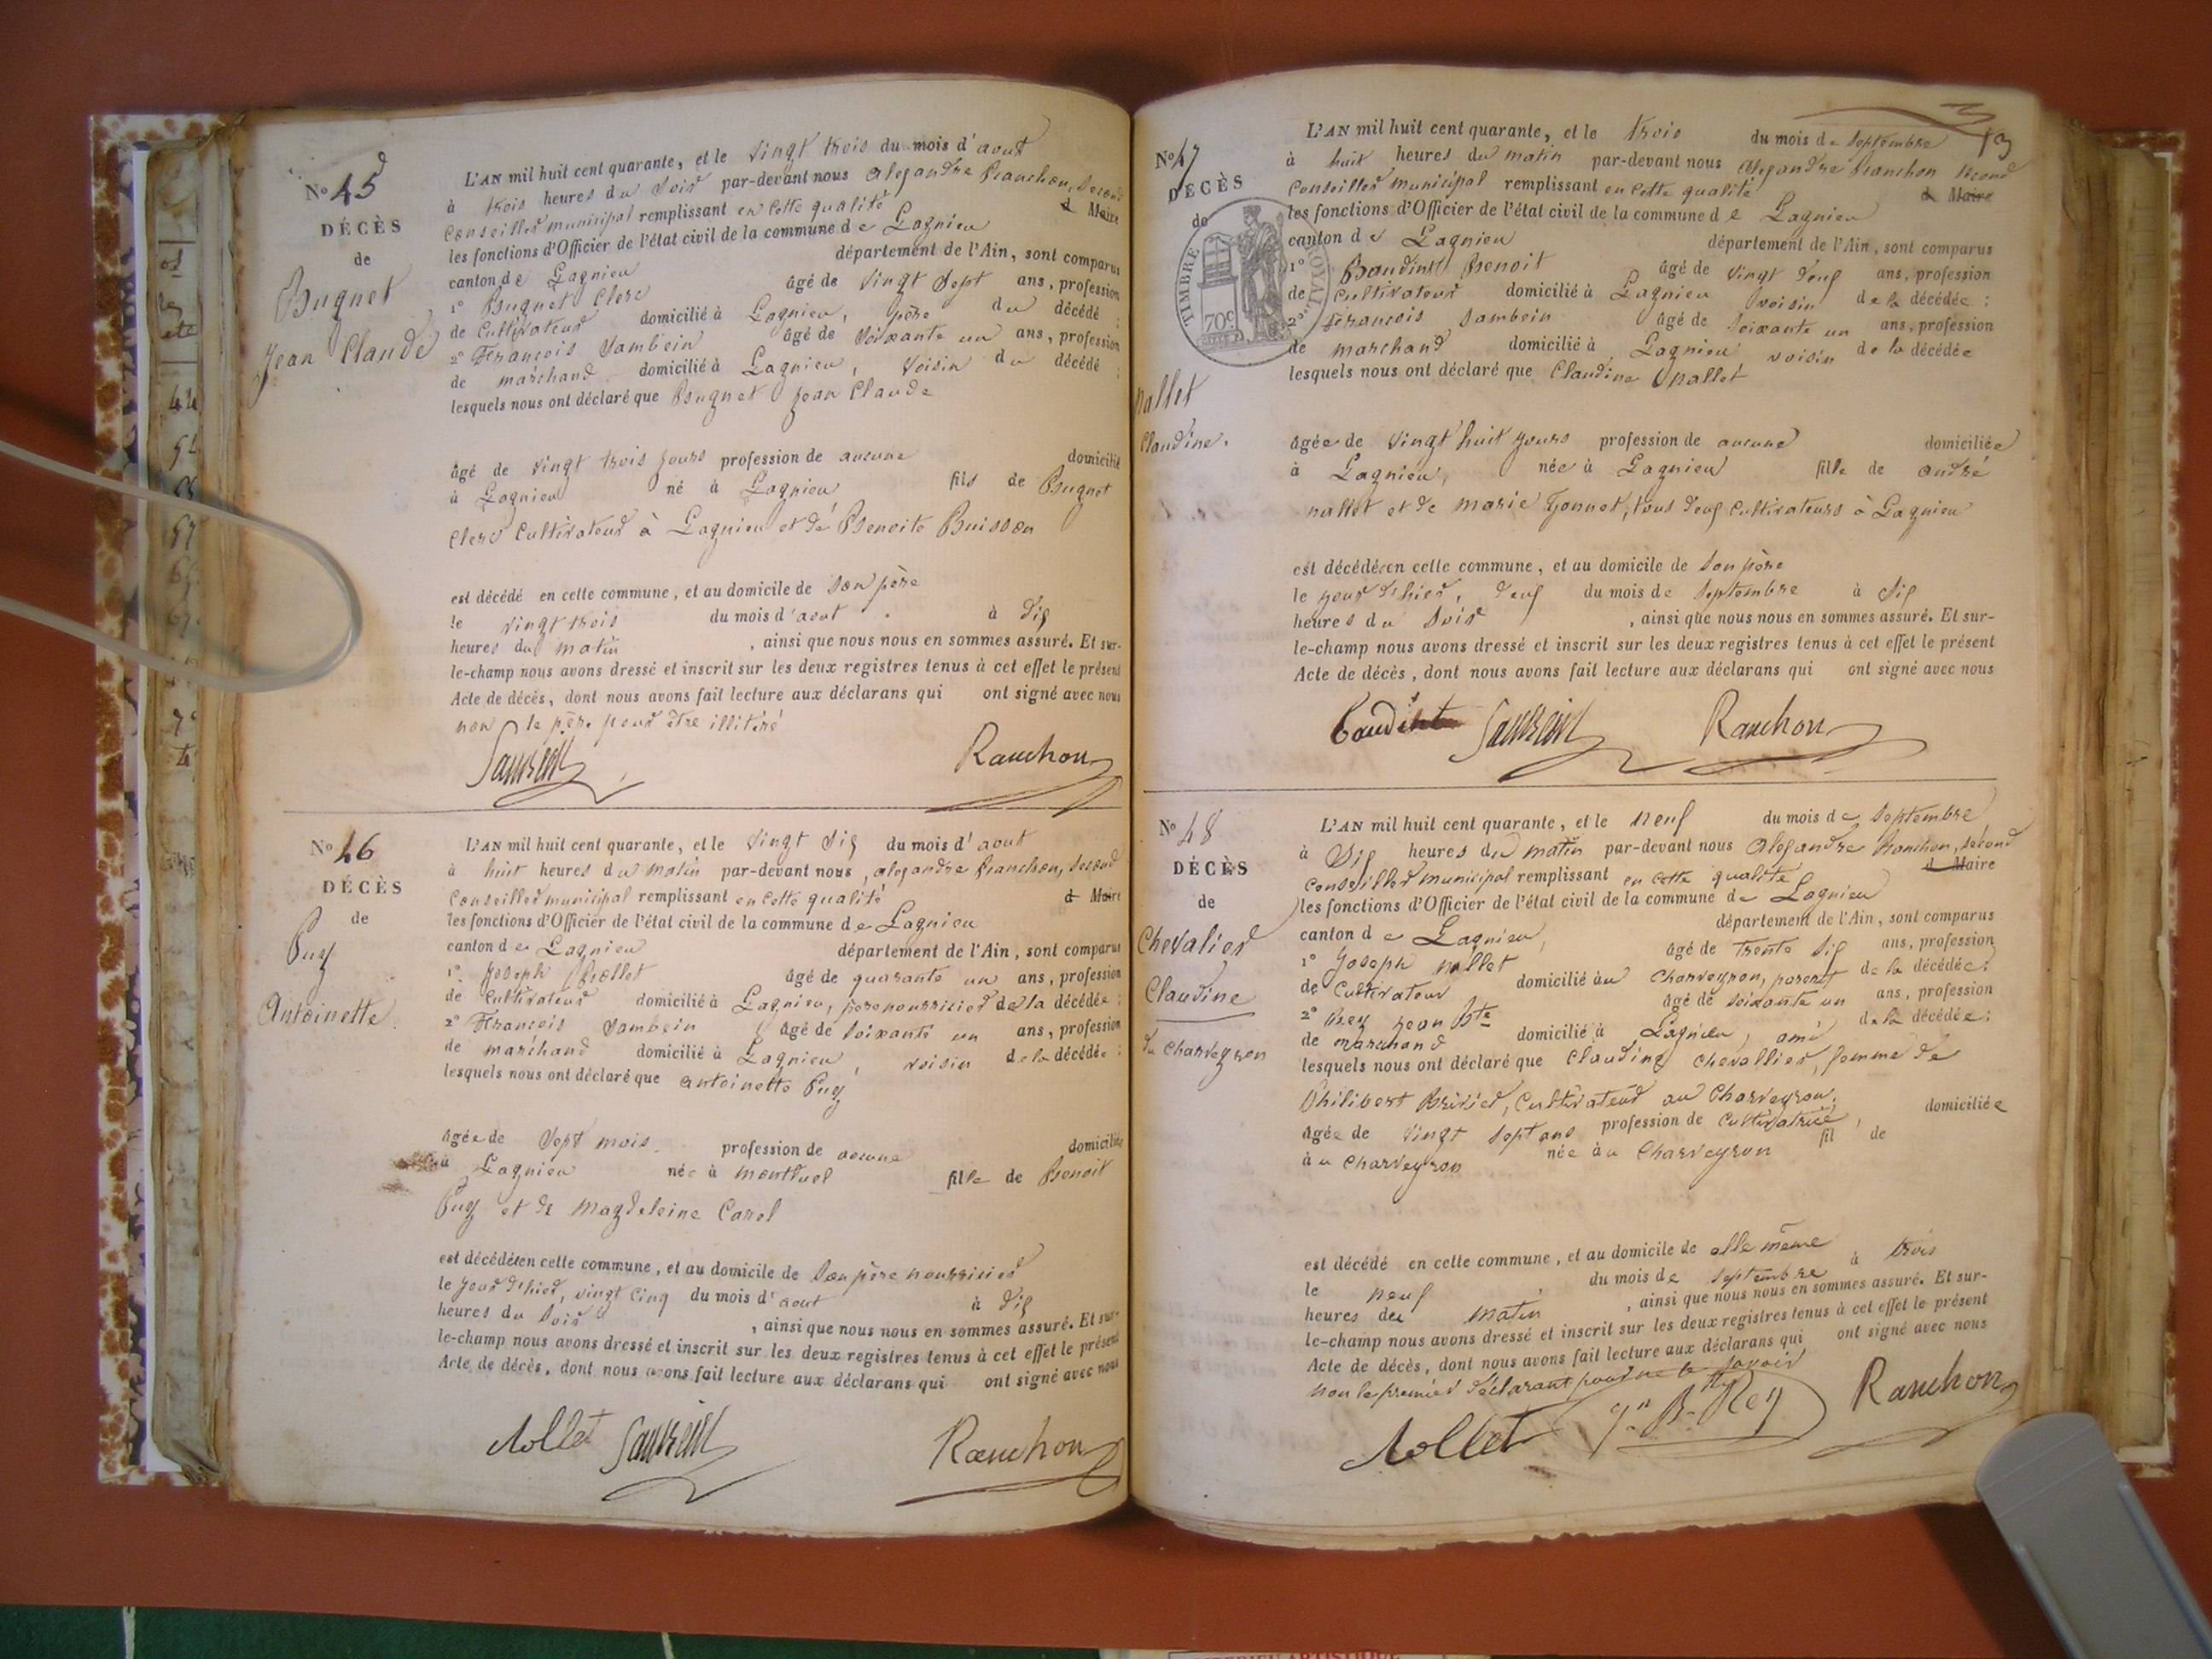 N° 45
DÉCÈS
de
Buguet
Jean Claude
L'AN mil huit cent quarante, et le vingt trois du mois d'aout
à trois heures du Soir par-devant nous alexandre Ranchon, second
Conseiller municipal remplissant en cette qualité d Maire
les fonctions d'Officier de l'état civil de la commune de Lagnieu
canton de Lagnieu département de l'Ain, sont comparus
1° Buguet Clerc âgé de vingt sept ans, profession
de Cultivateur domicilié à Lagnieu, père du décédé ;
2° François Sambein âgé de soixante un ans, profession
de marchand domicilié à Lagnieu, voisin du décédé ;
lesquels nous ont déclaré que Buguet Jean Claude
âgé de vingt trois jours profession de aucune domicilié
à Lagnieu né à Lagnieu fils de Buguet
Clerc Cultivateur à Lagnieu et de Benoite Buisson
est décédé en cette commune, et au domicile de son père
le vingt trois du mois d'aout à dix
heures du matin , ainsi que nous nous en sommes assuré. Et sur-
le-champ nous avons dressé et inscrit sur les deux registres tenus à cet effet le présent
Acte de décès, dont nous avons fait lecture aux déclarans qui ont signé avec nous
non le père pour être illitéré
Sambein Ranchon
N° 46
DÉCÈS
de
Puy
Antoinette
L'AN mil huit cent quarante, et le vingt six du mois d'aout
à huit heures du matin par-devant nous, alexandre Ranchon, second
Conseiller municipal remplissant en cette qualité d Maire
les fonctions d'Officier de l'état civil de la commune de Lagnieu
canton de Lagnieu département de l'Ain, sont comparus
1° Joseph Nollet âgé de quarante un ans, profession
de Cultivateur domicilié à Lagnieu, père nourricier de la décédée ;
2° François Sambein âgé de soixante un ans, profession
de marchand domicilié à Lagnieu, voisin de la décédée ;
lesquels nous ont déclaré que antoinette Puy
âgée de sept mois profession de aucune domiciliée
à Lagnieu née à montluel fille de Benoit
Puy et de Magdeleine Carrel
est décédée en cette commune, et au domicile de son père nourricier
le jour d'hier, vingt cinq du mois d'aout à dix
heures du soir , ainsi que nous nous en sommes assuré. Et sur-
le-champ nous avons dressé et inscrit sur les deux registres tenus à cet effet le présent
Acte de décès, dont nous avons fait lecture aux déclarans qui ont signé avec nous
Nollet Sambein Ranchon
13
N° 47
DÉCÈS
de
TIMBRE ROYAL
70c
nallet
Claudine.
L'AN mil huit cent quarante, et le trois du mois de septembre
à huit heures du matin par-devant nous alexandre Ranchon second
Conseiller municipal remplissant en cette qualité d Maire
les fonctions d'Officier de l'état civil de la commune de Lagnieu
canton de Lagnieu département de l'Ain, sont comparus
1° Baudint Benoit âgé de vingt deux ans, profession
de Cultivateur domicilié à Lagnieu voisin de la décédée ;
2° François Sambein âgé de soixante un ans, profession
de marchand domicilié à Lagnieu voisin de la décédée
lesquels nous ont déclaré que Claudine nallet
âgée de vingt huit jours profession de aucune domiciliée
à Lagnieu, née à Lagnieu fille de andré
nallet et de marie Gonnet, tous deux Cultivateurs à Lagnieu
est décédée en cette commune, et au domicile de son père
le jour d'hier, deux du mois de septembre à six
heures du soir , ainsi que nous nous en sommes assuré. Et sur-
le-champ nous avons dressé et inscrit sur les deux registres tenus à cet effet le présent
Acte de décès, dont nous avons fait lecture aux déclarans qui ont signé avec nous
Baudint Sambein Ranchon
N° 48
DÉCÈS
de
Chevalier
Claudine
du Charveyron
L'AN mil huit cent quarante, et le neuf du mois de septembre
à dix heures du matin par-devant nous alexandre Ranchon, second
Conseiller municipal remplissant en cette qualité d Maire
les fonctions d'Officier de l'état civil de la commune de Lagnieu
canton de Lagnieu, département de l'Ain, sont comparus
1° Joseph nollet âgé de trente six ans, profession
de Cultivateur domicilié au Charveyron, parent de la décédée ;
2° Rey jean Bte âgé de soixante un ans, profession
de marchand domicilié à Lagnieu, ami de la décédée ;
lesquels nous ont déclaré que Claudine Chevallier, femme de
Philibert Brivier, Cultivateur au Charveyron.
âgée de vingt sept ans profession de Cultivatrice, domiciliée
à u Charveyron née à u Charveyron fil de
est décédé en cette commune, et au domicile de elle même
le neuf du mois de septembre à trois
heures du matin , ainsi que nous nous en sommes assuré. Et sur-
le-champ nous avons dressé et inscrit sur les deux registres tenus à cet effet le présent
Acte de décès, dont nous avons fait lecture aux déclarans qui ont signé avec nous
non le premier déclarant pour ne le savoir
Nollet Jn Bte Rey Ranchon